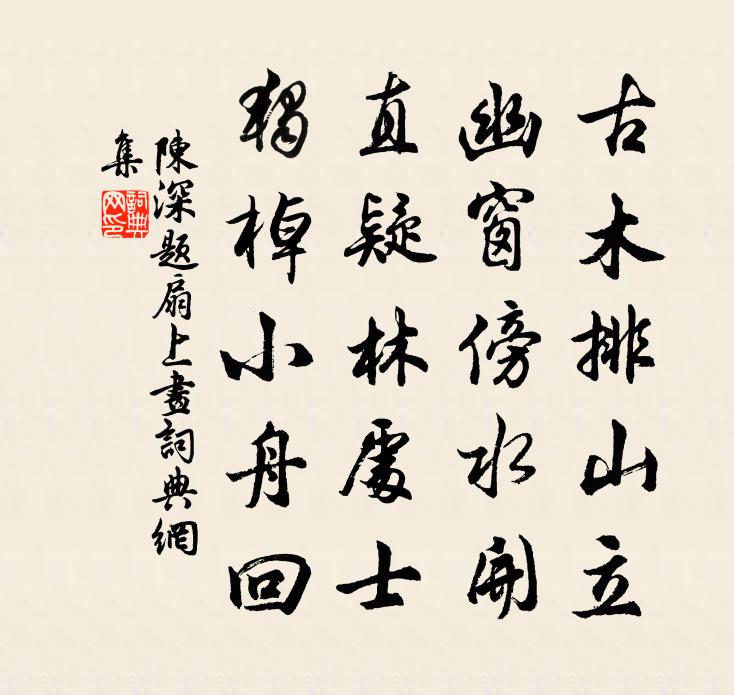 古木排山立
幽窗傍水開
直疑林處士
獨棹小舟回
陳深題扇上畫詞典網
集
詞典網印